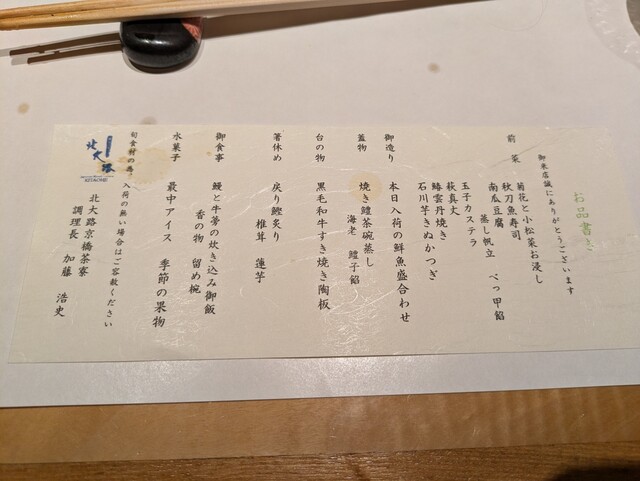 お品書き
御来店誠にありがとうございます
前菜
菊花と小松菜お浸し
秋刀魚寿司
南瓜豆腐 蒸し帆立 べっ甲餡
玉子カステラ
萩真丈
鰆雲丹焼き
石川芋きぬかつぎ
御造り
本日入荷の鮮魚盛合わせ
蓋物
焼き鱧茶碗蒸し
海老 鱧子餡
台の物
黒毛和牛すき焼き陶板
箸休め
戻り鰹炙り
椎茸 蓮芋
御食事
鰻と牛蒡の炊き込み御飯
香の物 留め椀
水菓子
最中アイス 季節の果物
旬食材の為、入荷の無い場合はご容赦ください
北大路京橋茶寮
調理長 加藤 浩史
北大路